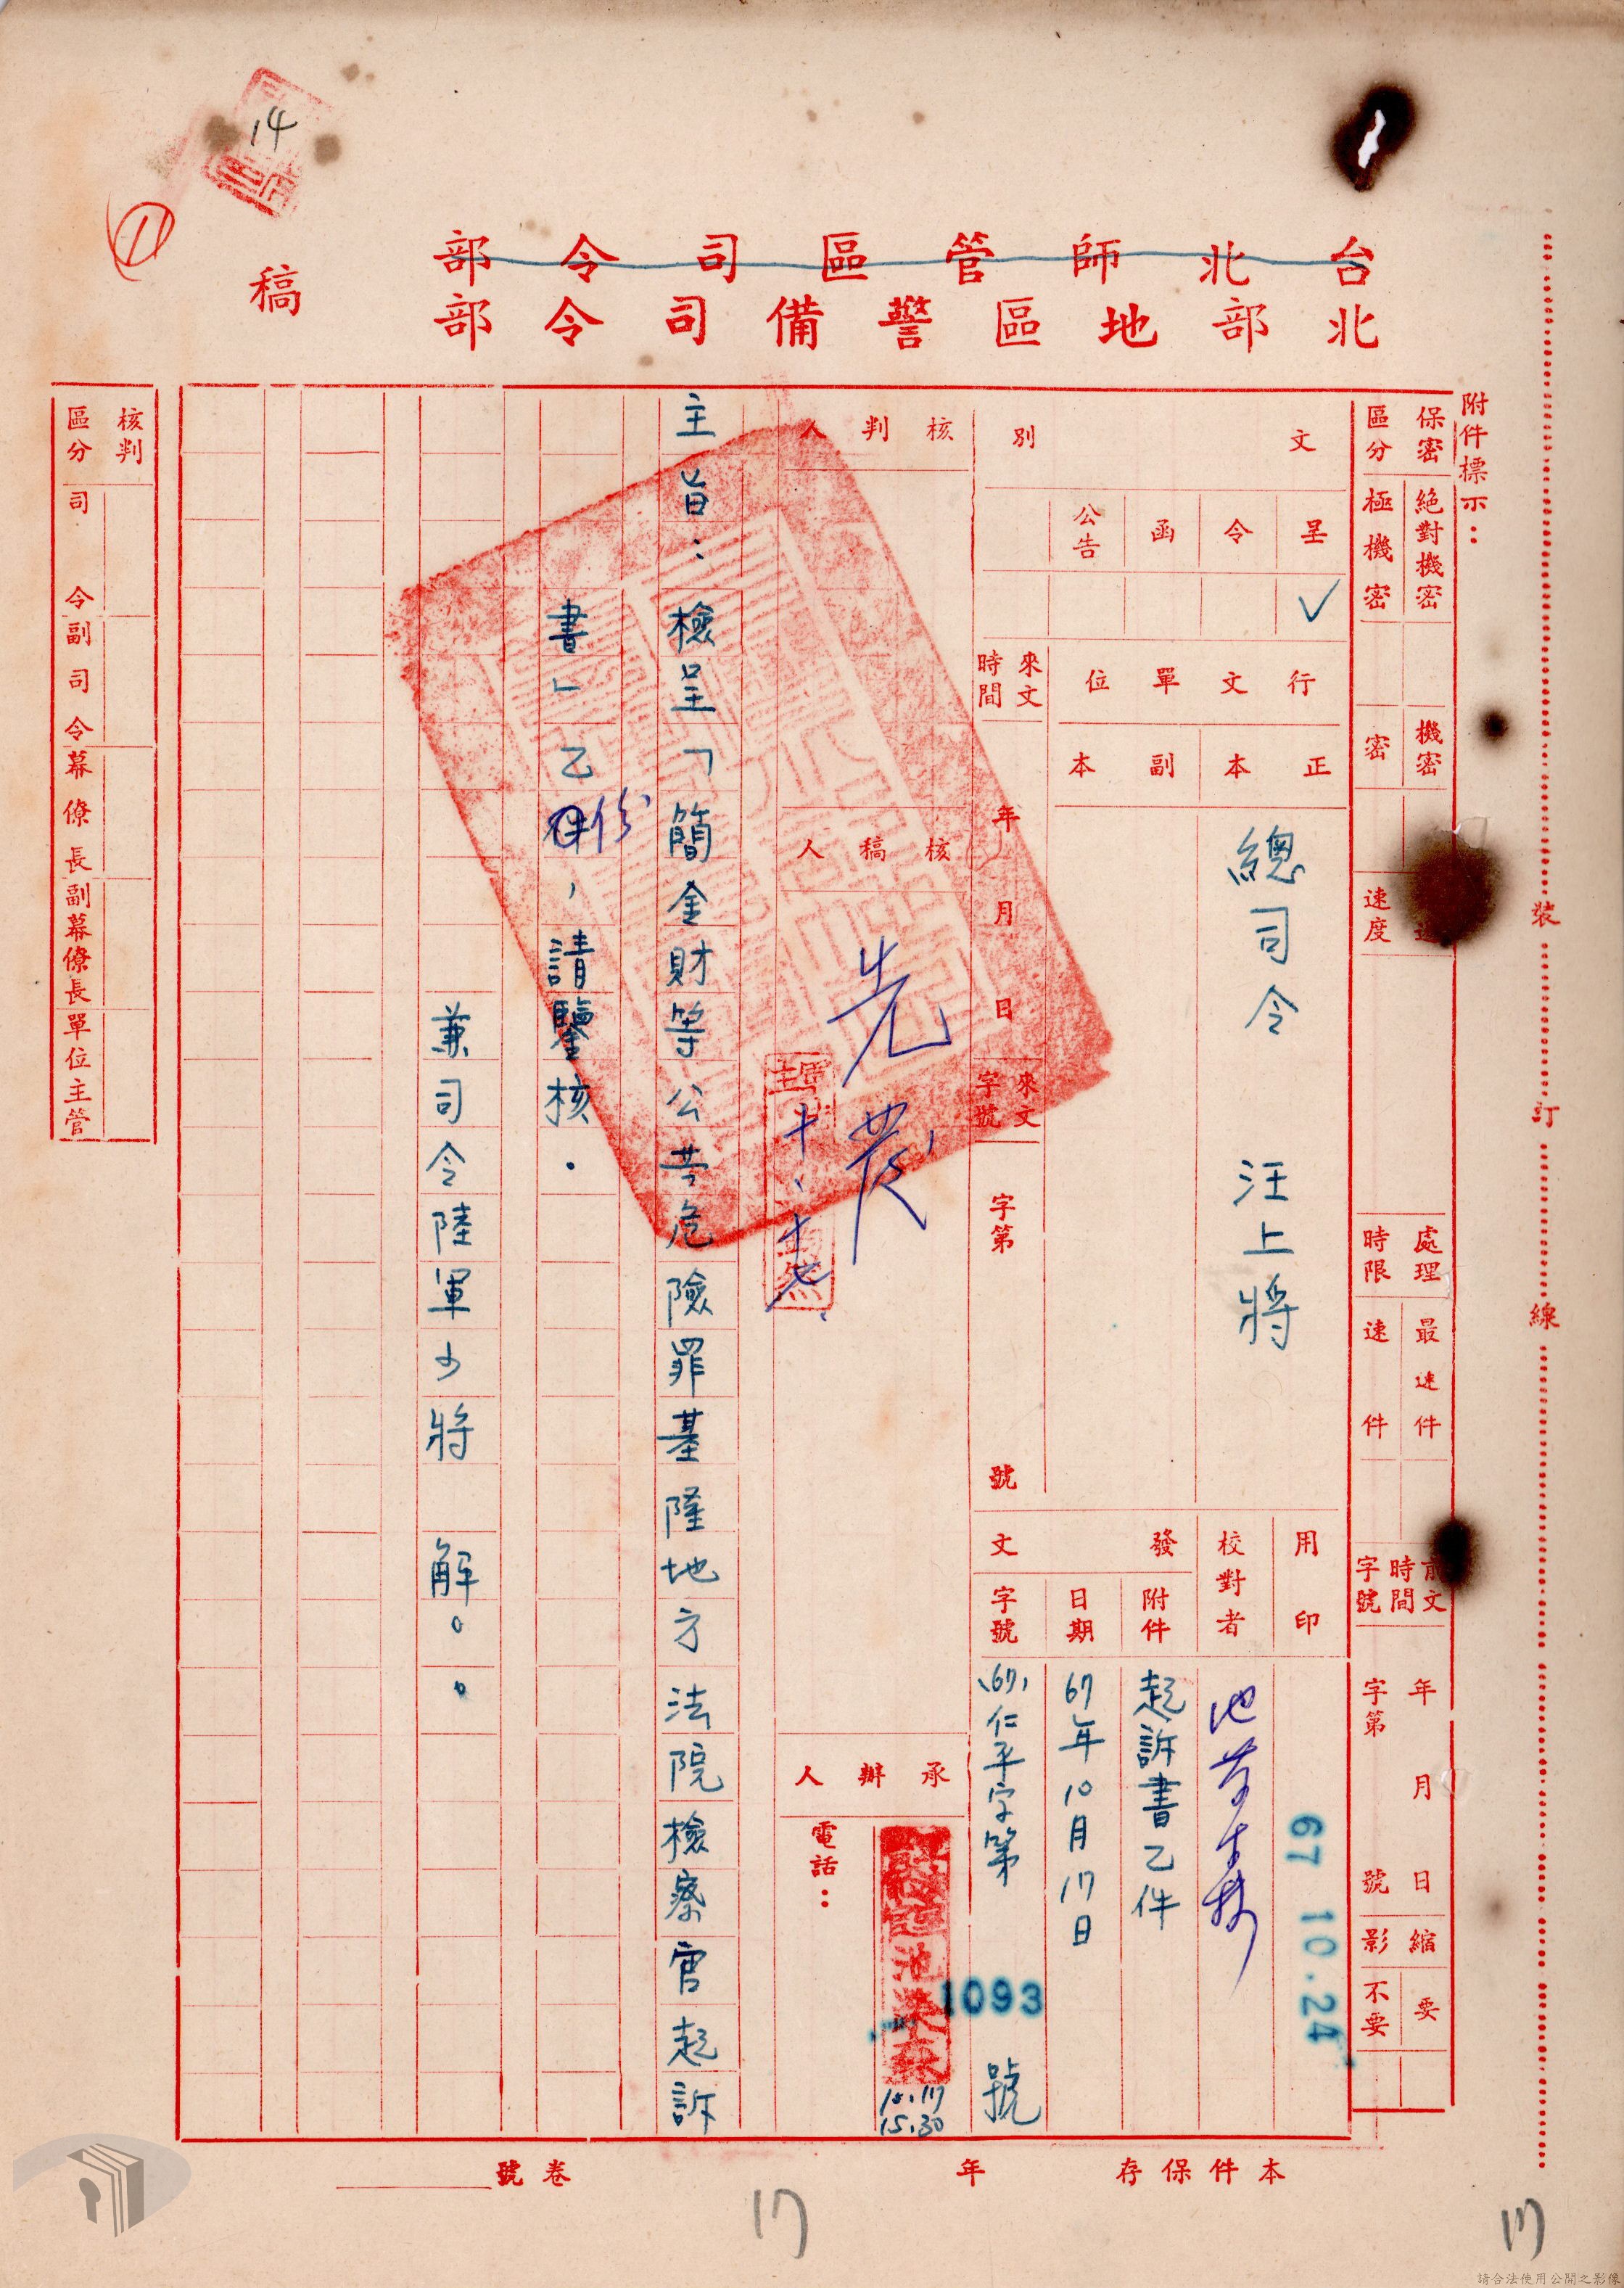 14
11
台北師管區司令部
北部地區警備司令部
稿
附件標示：
保密區分
絕對機密
極機密
機密
密
速度
處理時限
最速件
速件
前文時間字號
年月日
字第號
縮影
要
不要
文別
呈
令
函
公告
✓
行文單位
正本
副本
總司令 汪上將
來文時間
年月日
來文字號
字第
號
用印
67 10.24
校對者
發文
附件
起訴書乙件
日期
67年10月17日
字號
(67)仁平字第 1093 號
核判人
核稿人
十、十七、
承辦人
10.17
15.30
電話：
主旨：檢呈「簡金財等公共危險罪基隆地方法院檢察官起訴
書」乙份，請鑒核．
兼司令陸軍少將 解。。
核判區分
司令
副司令
幕僚長
副幕僚長
單位主管
裝
訂
線
本件保存 年
卷號
17
17
請合法使用公開之影像